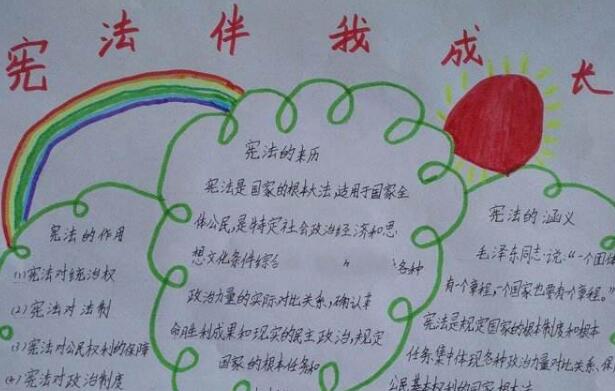 宪法伴我成长
宪法的作用
(1)宪法对统治权
(2)宪法对法制
(3)宪法对公民权利的保障
(4)宪法对政治制度
宪法的来历
宪法是国家的根本大法,适用于国家全
体公民,是特定社会政治经济和思
想文化条件综合
各种
政治力量的实际对比关系,确认革
命胜利成果和现实的民主政治,规定
国家的根本任务和
宪法的涵义
毛泽东同志说:“一个团体
有一个章程,一个国家也要有个章程。”
宪法是规定国家的根本制度和根本
任务集中体现各种政治力量对比关系、保
公民基本权利的国家根本法